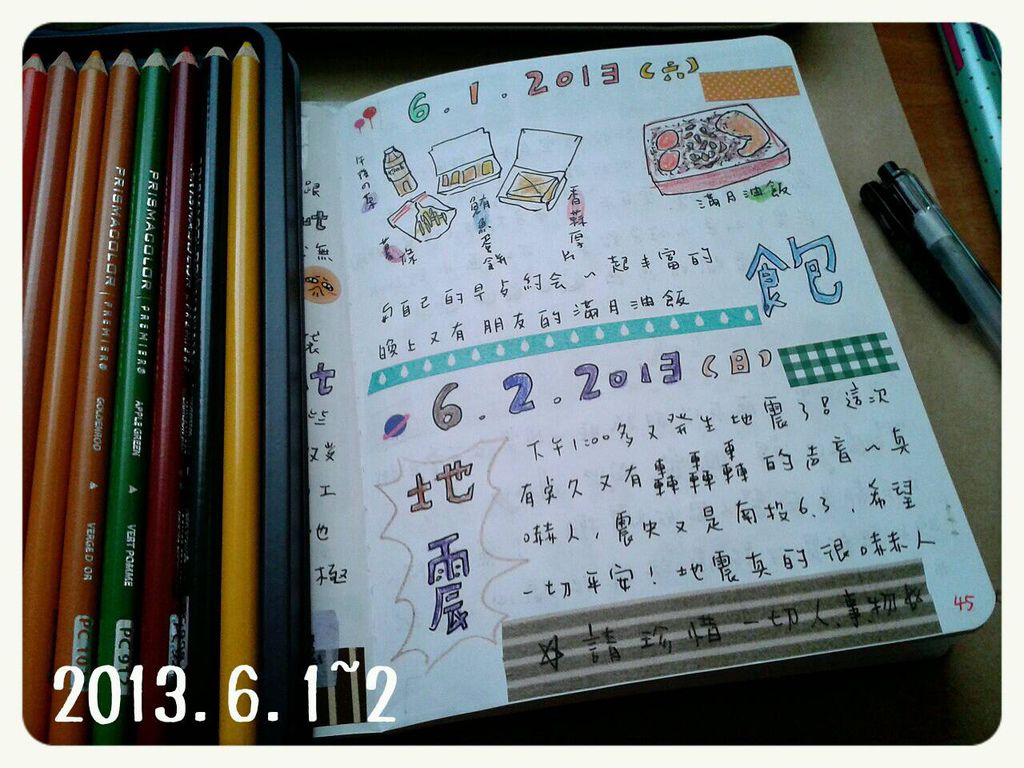 6.1.2013(六)
午後の
薯條
鮪魚蛋餅
香蒜厚片
滿月油飯
和自己的早点約会~超丰富的
晚上又有朋友的滿月油飯
飽
6.2.2013(日)
地震
下午1:00多又発生地震了!這次
有夠久又有轟轟轟的声音~真
嚇人,震央又是南投6.3,希望
一切平安!地震真的很嚇人
☆請珍惜一切人事物☆
45
PRISMACOLOR | PREMIER
GOLDENROD
VERGE D'OR
PRISMACOLOR | PREMIER
APPLE GREEN
VERT POMME
2013.6.1~2